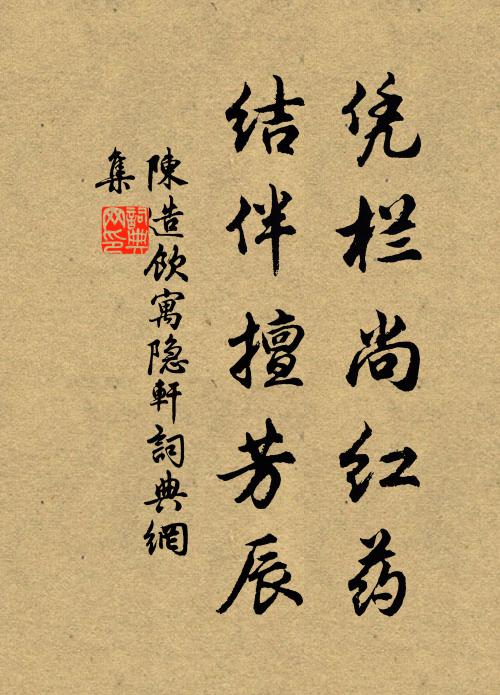 凭栏尚红药
结伴擅芳辰
陳造飲寓隐軒詞典網
集
詞典
网印